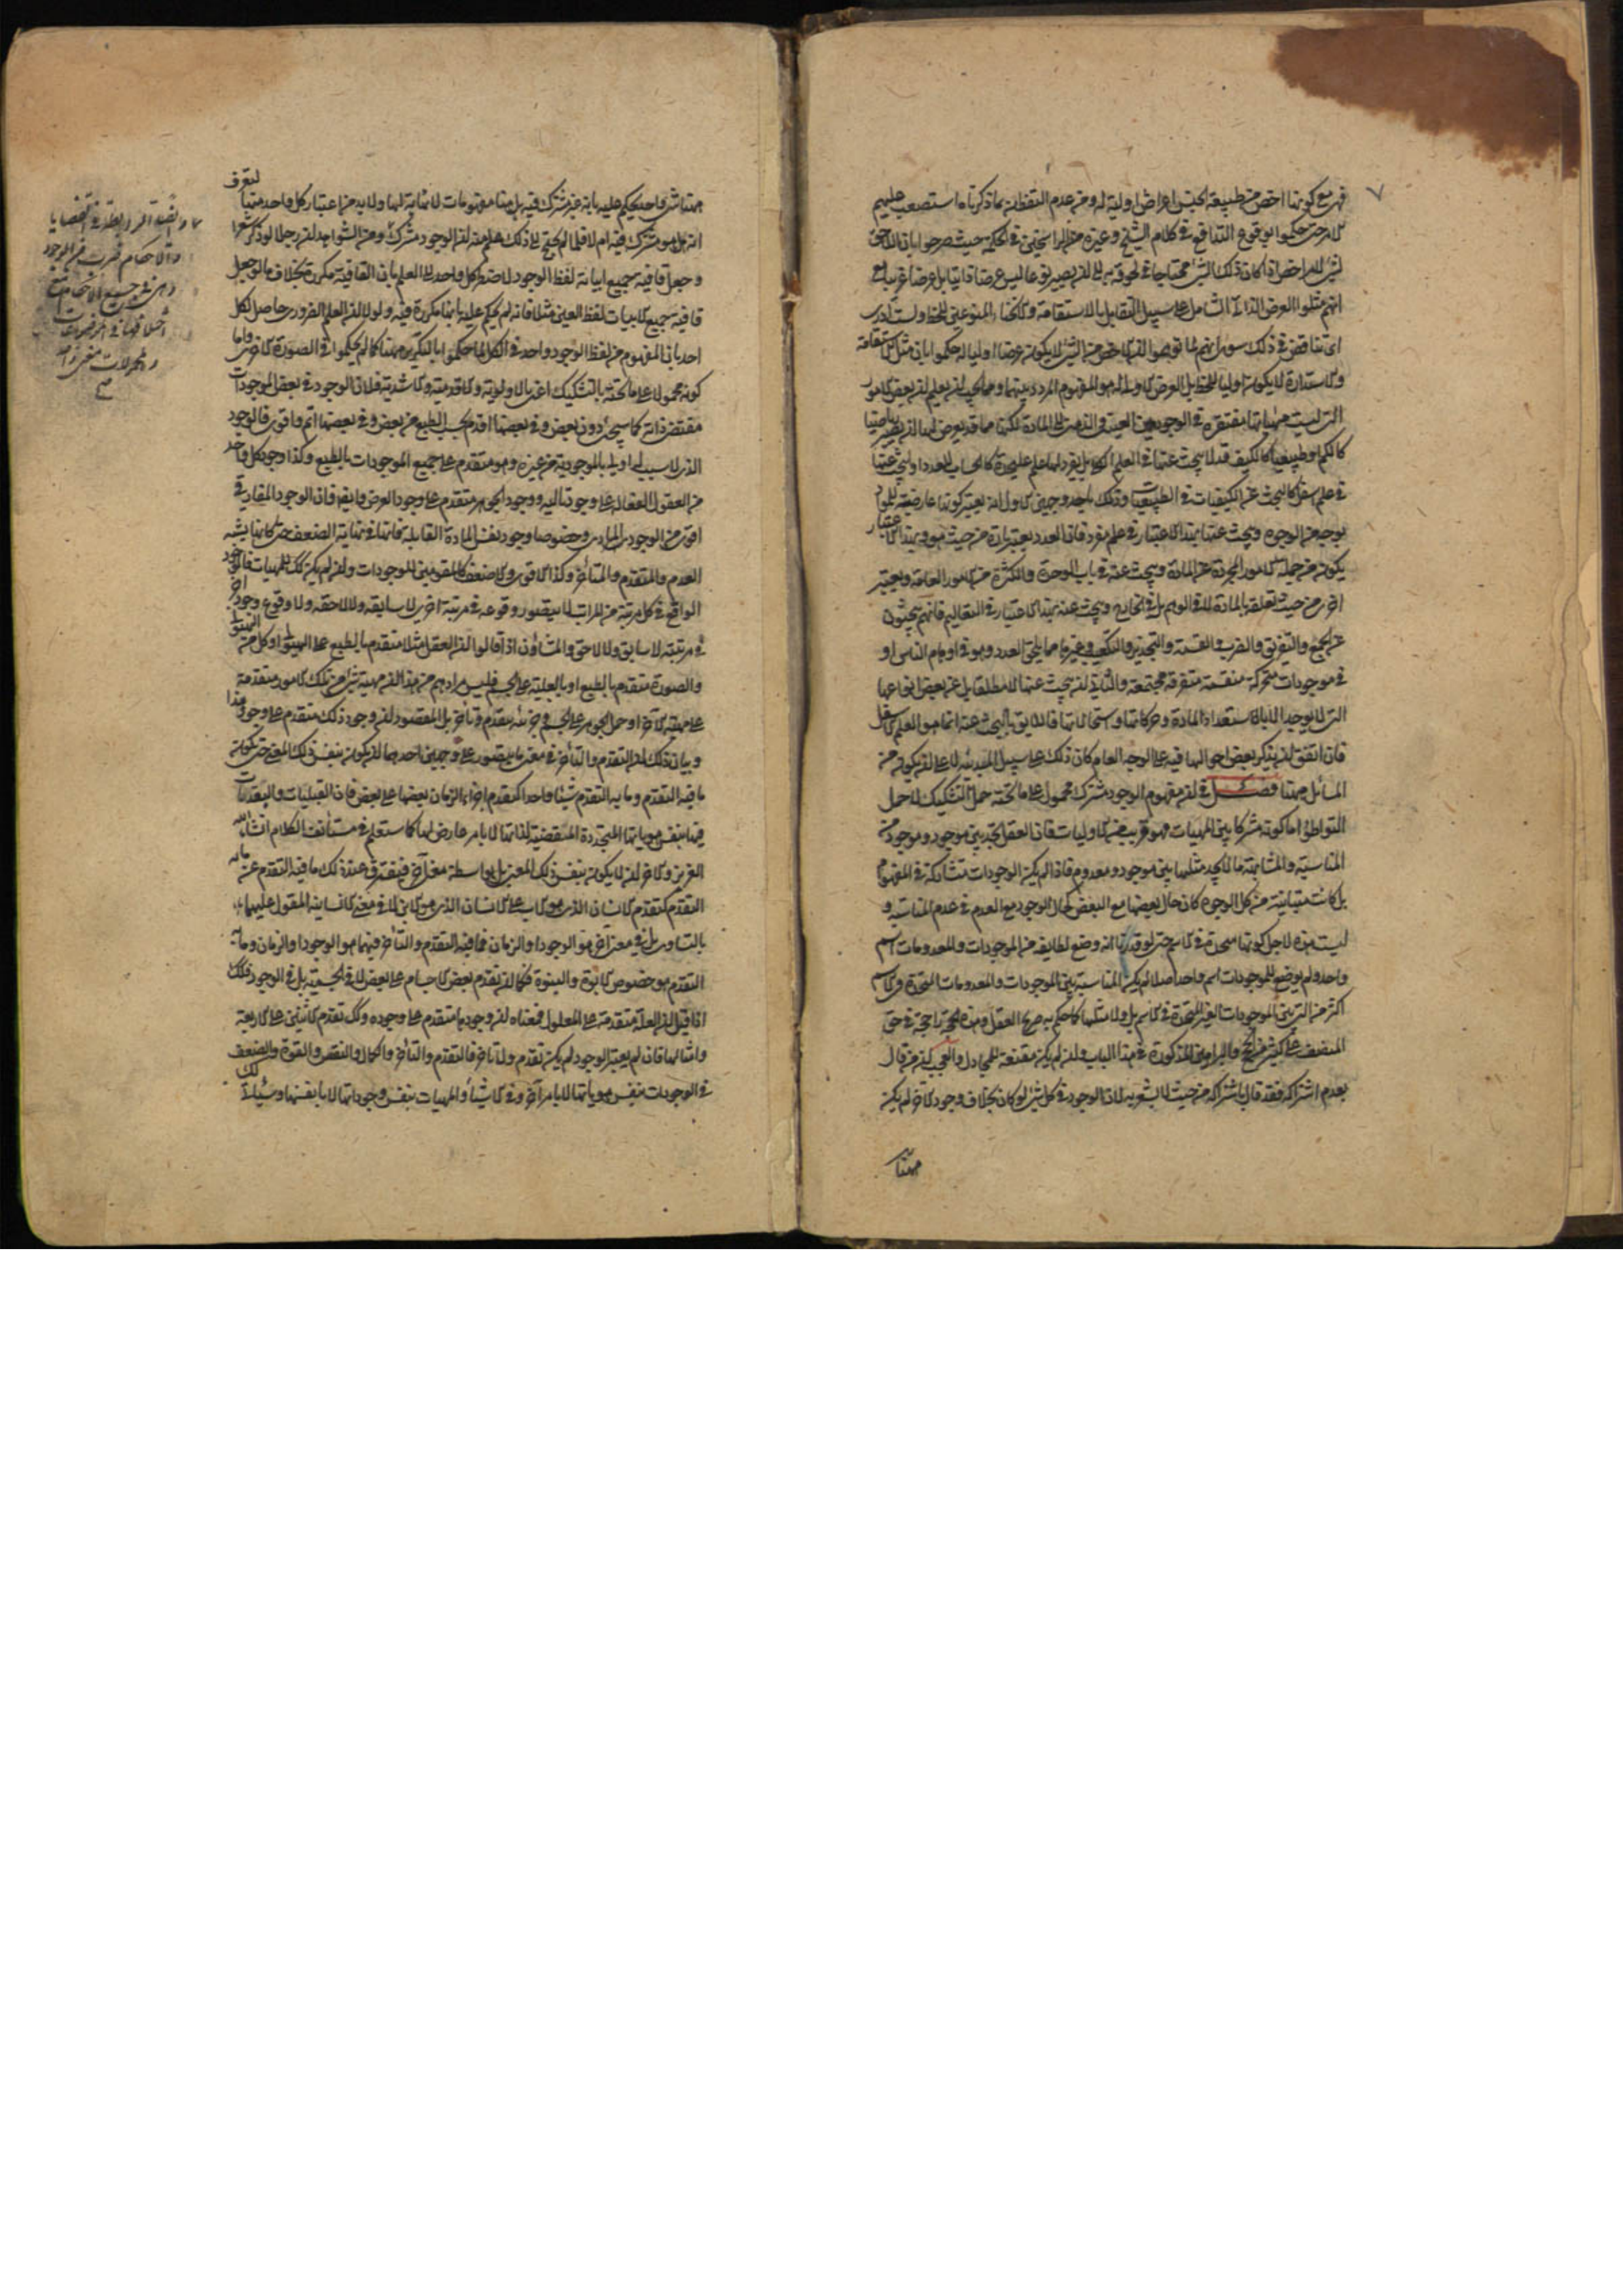 ٧
فهى مع كونها اخص من طبيعة الجنس اعراض اولية له ومن عدم التفطن بما ذكرناه استصعب عليهم
الامر حتى حكموا بوقوع التدافع فى كلام الشيخ وغيره من الراسخين فى الحكمة حيث صرحوا بان اللاحق
لشئ لامر اخص اذا كان ذلك الشئ محتاجا فى لحوقه به الى ان يصير نوعا ليس عرضا ذاتيا بل عرضا غريبا مع
انهم مثلوا العرض الذاتى الشامل على سبيل التقابل بالاستقامة والانحناء المنوعين للخط ولست ادرى
اى تناقض فى ذلك سوى انهم لما توهموا ان الاخص من الشئ لا يكون عرضا اوليا له حكموا بان مثل الاستقامة
والاستدارة لا يكون اوليا للخط بل العرض الاولى له هو المفهوم المردد بينهما ومما يجب ان يعلم ان بعض الامور
التى ليست مهياتها مفتقرة فى الوجودين العينى والذهنى الى المادة لكنها مما قد يعرض لها ان يصير رياضيا
كالكم او طبيعيا كالكيف قد لا يبحث عنها فى العلم الكلى بل يفرد لها علم عليحدة كالحساب للعدد او يبحث عنها
فى علم اسفل كالبحث عن الكيفيات فى الطبيعيات وذلك باحد وجهين الاول انه يعتبر كونها عارضة للمواد
بوجه من الوجوه ويبحث عنها بهذا الاعتبار فى علم مفرد فان العدد يعتبر تارة من حيث هو وبهذا الاعتبار
يكون من جملة الامور المجردة عن المادة ويبحث عنه فى باب الوحدة والكثرة من الامور العامة ويعتبر
اخرى من حيث تعلقه بالمادة لا فى الوهم بل فى الخارج ويبحث عنه بهذا الاعتبار فى التعاليم فانهم يبحثون
عن الجمع والتفريق والضرب والقسمة والتجذير والتكعيب وغيرها مما يلحق العدد وهو فى اوهام الناس او
فى موجودات متحركة منقسمة متفرقة مجتمعة والثانى ان يبحث عنها لا مطلقا بل عن بعض انواعها
التى لا يوجد الا باستعداد المادة وحركاتها واستحالاتها فاللايق بالبحث عنه انما هو العلم الاسفل
فان اتفق ان يذكر بعض احوالها فيه على الوجه العام كان ذلك على سبيل المبدئية لا على ان يكون من
المسائل ههنا فصل فى ان مفهوم الوجود مشترك محمول على ما تحته حمل التشكيك لا حمل
التواطؤ اما كونه مشتركا بين المهيات فهو قريب من الاوليات فان العقل يجد بين موجود وموجود من
المناسبة والمشابهة ما لا يجد مثلها بين موجود ومعدوم فاذا لم يكن الموجودات متشاركة فى المفهوم
بل كانت متباينة من كل الوجوه كان حال بعضها مع البعض كحال الوجود مع العدم فى عدم المناسبة و
ليست هذه لاجل كونها متحدة فى الاسم حتى لو قدرنا انه وضع لطايفة من الموجودات والمعدومات اسم
واحد ولم يوضع للموجودات اسم واحد اصلا لم يكن المناسبة بين الموجودات والمعدومات المتحدة فى الاسم
اكثر من التى بين الموجودات الغير المتحدة فى الاسم بل ولا مثلها كما حكم به صريح العقل وهذه الحجة راجحة فى حق
المنصف على كثير من الحجج والبراهين المذكورة فى هذا الباب وان لم يكن مقنعة للمجادل والعجب ان من قال
بعدم اشتراكه فقد قال باشتراكه من حيث لا يشعر به لان الوجود فى كل شئ لو كان بخلاف وجود الاخر لم يكن
ههنا
ههنا شئ واحد يحكم عليه بانه غير مشترك فيه بل ههنا مفهومات لا نهاية لها ولا بد من اعتبار كل واحد منها ليعرف
انه هل هو مشترك فيه ام لا فلما لم يحتج الى ذلك علم منه ان الوجود مشترك ومن الشواهد ان رجلا لو ذكر شعرا
وجعل قافية جميع ابياته لفظ الوجود لاضطر كل واحد الى العلم بان القافية مكررة بخلاف ما لو جعل
قافية جميع الابيات لفظ العين مثلا فانه لم يحكم عليه بانها مكررة فيه ولولا ان العلم الضرورى حاصل لكل
احد بان المفهوم من لفظ الوجود واحد فى الكل لما حكموا بالتكرير ههنا كما لم يحكموا فى الصورة الاخرى واما
كونه محمولا على ما تحته بالتشكيك اعنى بالاولوية والاقدمية والاشدية فلان الوجود فى بعض الموجودات
مقتضى ذاته كما سيجئ دون بعض وفى بعضها اقدم بحسب الطبع من بعض وفى بعضها اتم واقوى فالوجود
الذى لا سبب له اولى بالموجودية من غيره وهو متقدم على جميع الموجودات بالطبع وكذا وجود كل واحد
من العقول الفعالة على وجود تاليه ووجود الجوهر متقدم على وجود العرض وايضا فان الوجود المفارقى
اقوى من الوجود المادى وخصوصا وجود نفس المادة القابلة فانها فى نهاية الضعف حتى كانها يشبه
العدم والمتقدم والمتأخر وكذا الاقوى والاضعف كالمقومين للموجودات وان لم يكن كك للمهيات فالوجود
الواقع فى كل مرتبة من المراتب لا يتصور وقوعه فى مرتبة اخرى لا سابقه ولا لاحقه ولا وقوع وجود اخر
فى مرتبته لا سابق ولا لاحق والمشاؤن اذا قالوا ان العقل مثلا متقدم بالطبع على الهيولى وكل من الهيولى
والصورة متقدم بالطبع او بالعلية على الجسم فليس مرادهم من هذا ان مهية شئ من تلك الامور متقدمة
على مهية الاخر او حمل الجوهر على الجسم وجزئيه بتقدم وتأخر بل المقصود ان وجود ذلك متقدم على وجود هذا
وبيان ذلك ان التقدم والتأخر فى معنى ما يتصور على وجهين احدهما ان يكون بنفس ذلك المعنى حتى يكون
ما فيه التقدم وما به التقدم شيئا واحدا كتقدم اجزاء الزمان بعضها على بعض فان القبليات والبعديات
فيها بنفس هوياتها المتجددة المنقضية لذاتها لا بامر عارض لها كما ستعلم فى مستأنف الكلام انشاءالله
العزيز والاخر ان لا يكون بنفس ذلك المعنى بل بواسطة معنى آخر فيفترق عند ذلك ما فيه التقدم عن ما به
التقدم كتقدم الانسان الذى هو الاب على الانسان الذى هو الابن لا فى معنى الانسانية المقول عليهما
بالتساوى بل فى معنى آخر هو الوجود او الزمان فما فيه التقدم والتأخر فيهما هو الوجود او الزمان وما به
التقدم هو خصوص الابوة والبنوة فكما ان تقدم بعض الاجسام على بعض لا فى الجسمية بل فى الوجود فكذلك
اذا قيل ان العلة متقدمة على المعلول فمعناه ان وجودها متقدم على وجوده وكك تقدم الاثنين على الاربعة
وامثالهما فان لم يعتبر الوجود لم يكن تقدم ولا تاخر فالتقدم والتأخر والكمال والنقص والقوة والضعف
فى الوجودات بنفس هوياتها لا بامر آخر وفى الاشياء والمهيات بنفس وجوداتها لا بانفسها وسيأتى لك
الرابطة فى القضايا
والاحكام ضرب من الوجود
وهى فى جميع الاحكام مع
اختلافها فى الموضوعات
والمحمولات معنى واحد